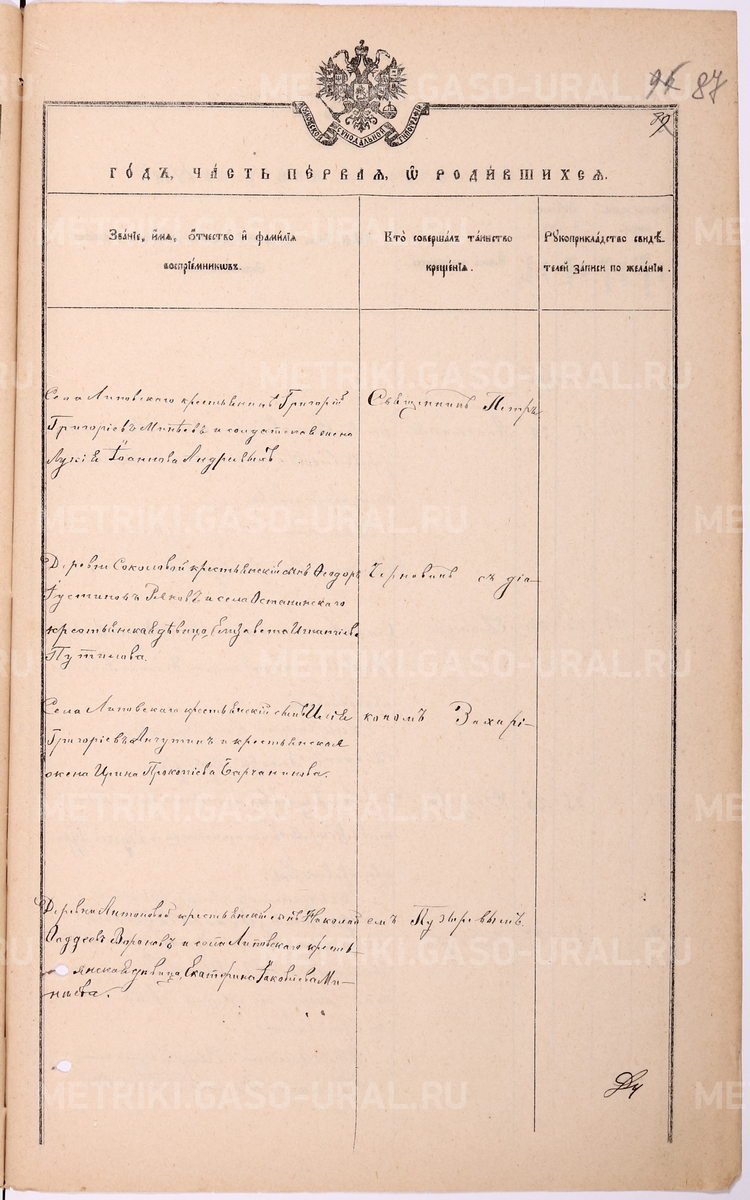 METRIKI.GASO-URAL.RU
87
89
МОСКОВСКОЙ СѴНОДАЛЬНОЙ ТИПОГРАФІИ
ГО́ДЪ, ЧА́СТЬ ПЕ́РВАЯ, Ѡ РОДИ́ВШИХСЯ.
Зва́нїе, и́мя, о́тчество и҆ фами́лїя
воспрїе́мниковъ.
Кто̀ соверша́лъ та́инство
креще́нїя.
Рꙋкоприкла́дство свидѣ́-
телей за́писи по жела́нїю.
Села Липовскаго крестьянинъ Григорій
Григоріевъ Минѣевъ и солдатская жена
Іоаннова Андріевыхъ
Священникъ Петръ
Деревни Соколовой крестьянскій сынъ Ѳеодоръ
Іустиновъ и села Останинскаго
крестьянская дѣвица Елизавета Игнатіева
Путилова.
съ діа-
Села Липовскаго крестьянскій сынъ
Григоріевъ и крестьянская
жена Ирина Прокопіева
кономъ Захарі-
Деревни Антоновой крестьянскій сынъ Николай
Ѳаддеевъ Вороновъ и села Липовскаго кресть-
янская дѣвица Екатерина Іаковлева Ми-
нѣева.
емъ Пузыревымъ.